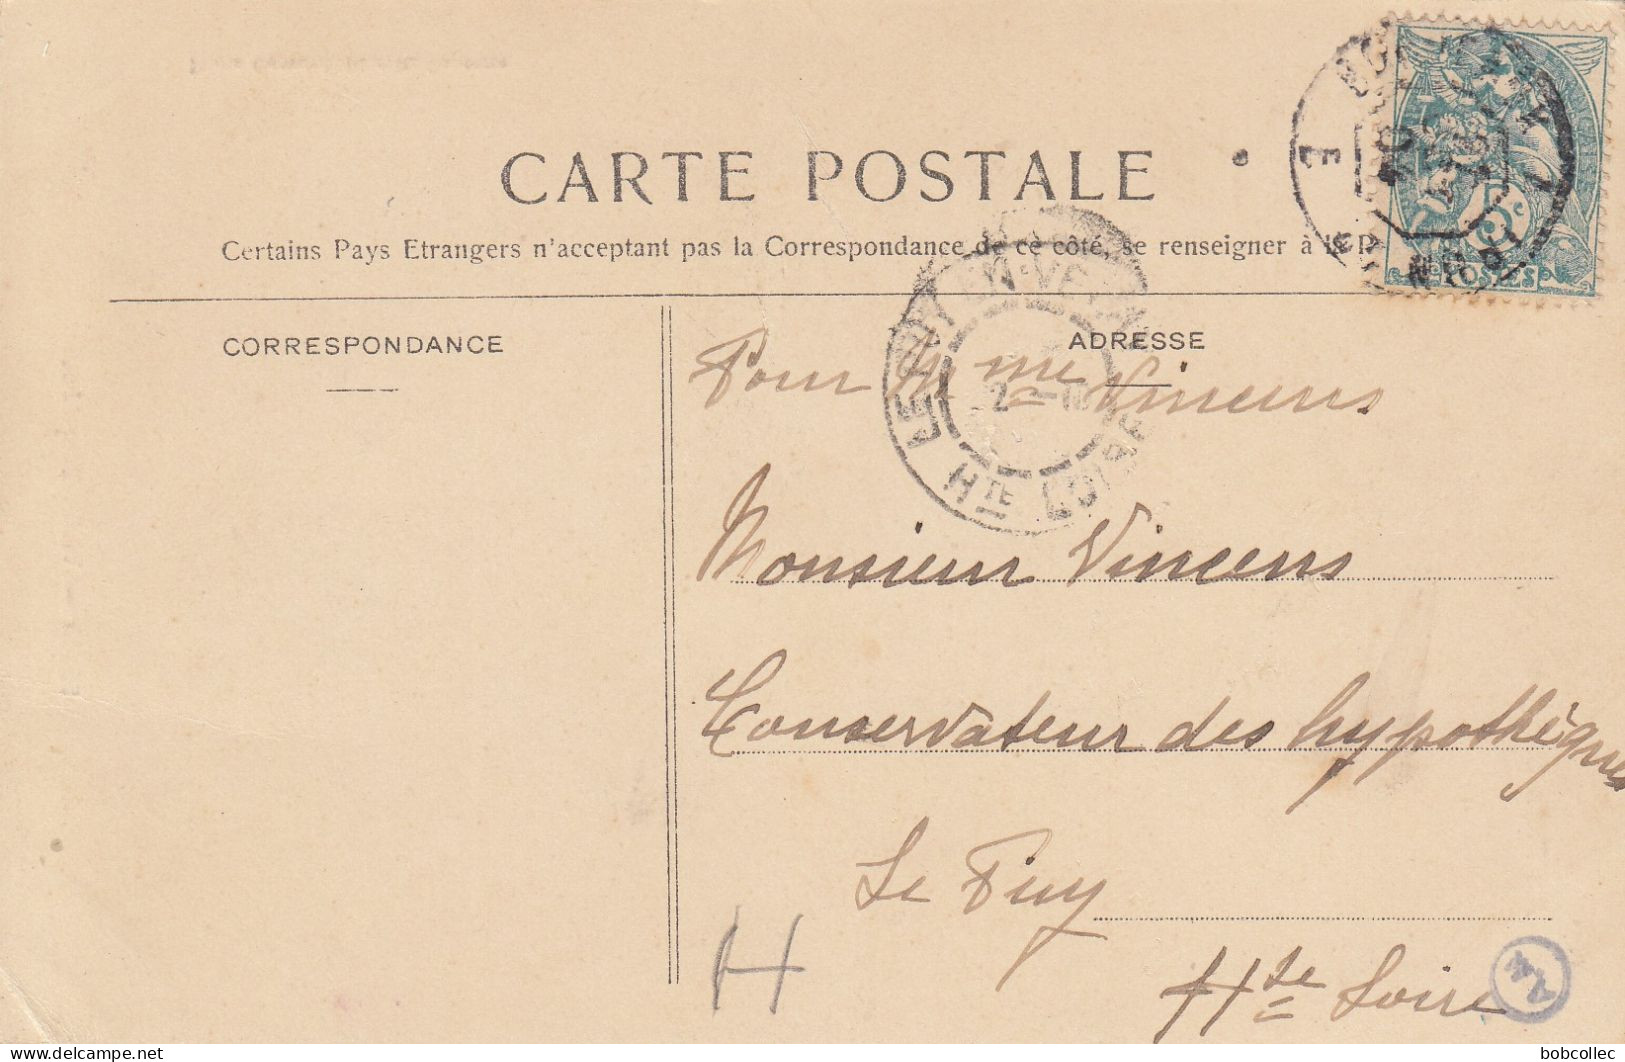 CARTE POSTALE
Certains Pays Etrangers n'acceptant pas la Correspondance de ce côté, se renseigner à la P
CORRESPONDANCE
ADRESSE
Pour Mme Vincens
Monsieur Vincens
Conservateur des hypothèques
Le Puy
Hte Loire
H
LE PUY-EN-VELAY
Hte LOIRE
E
5c
POSTES
24
bobcollec